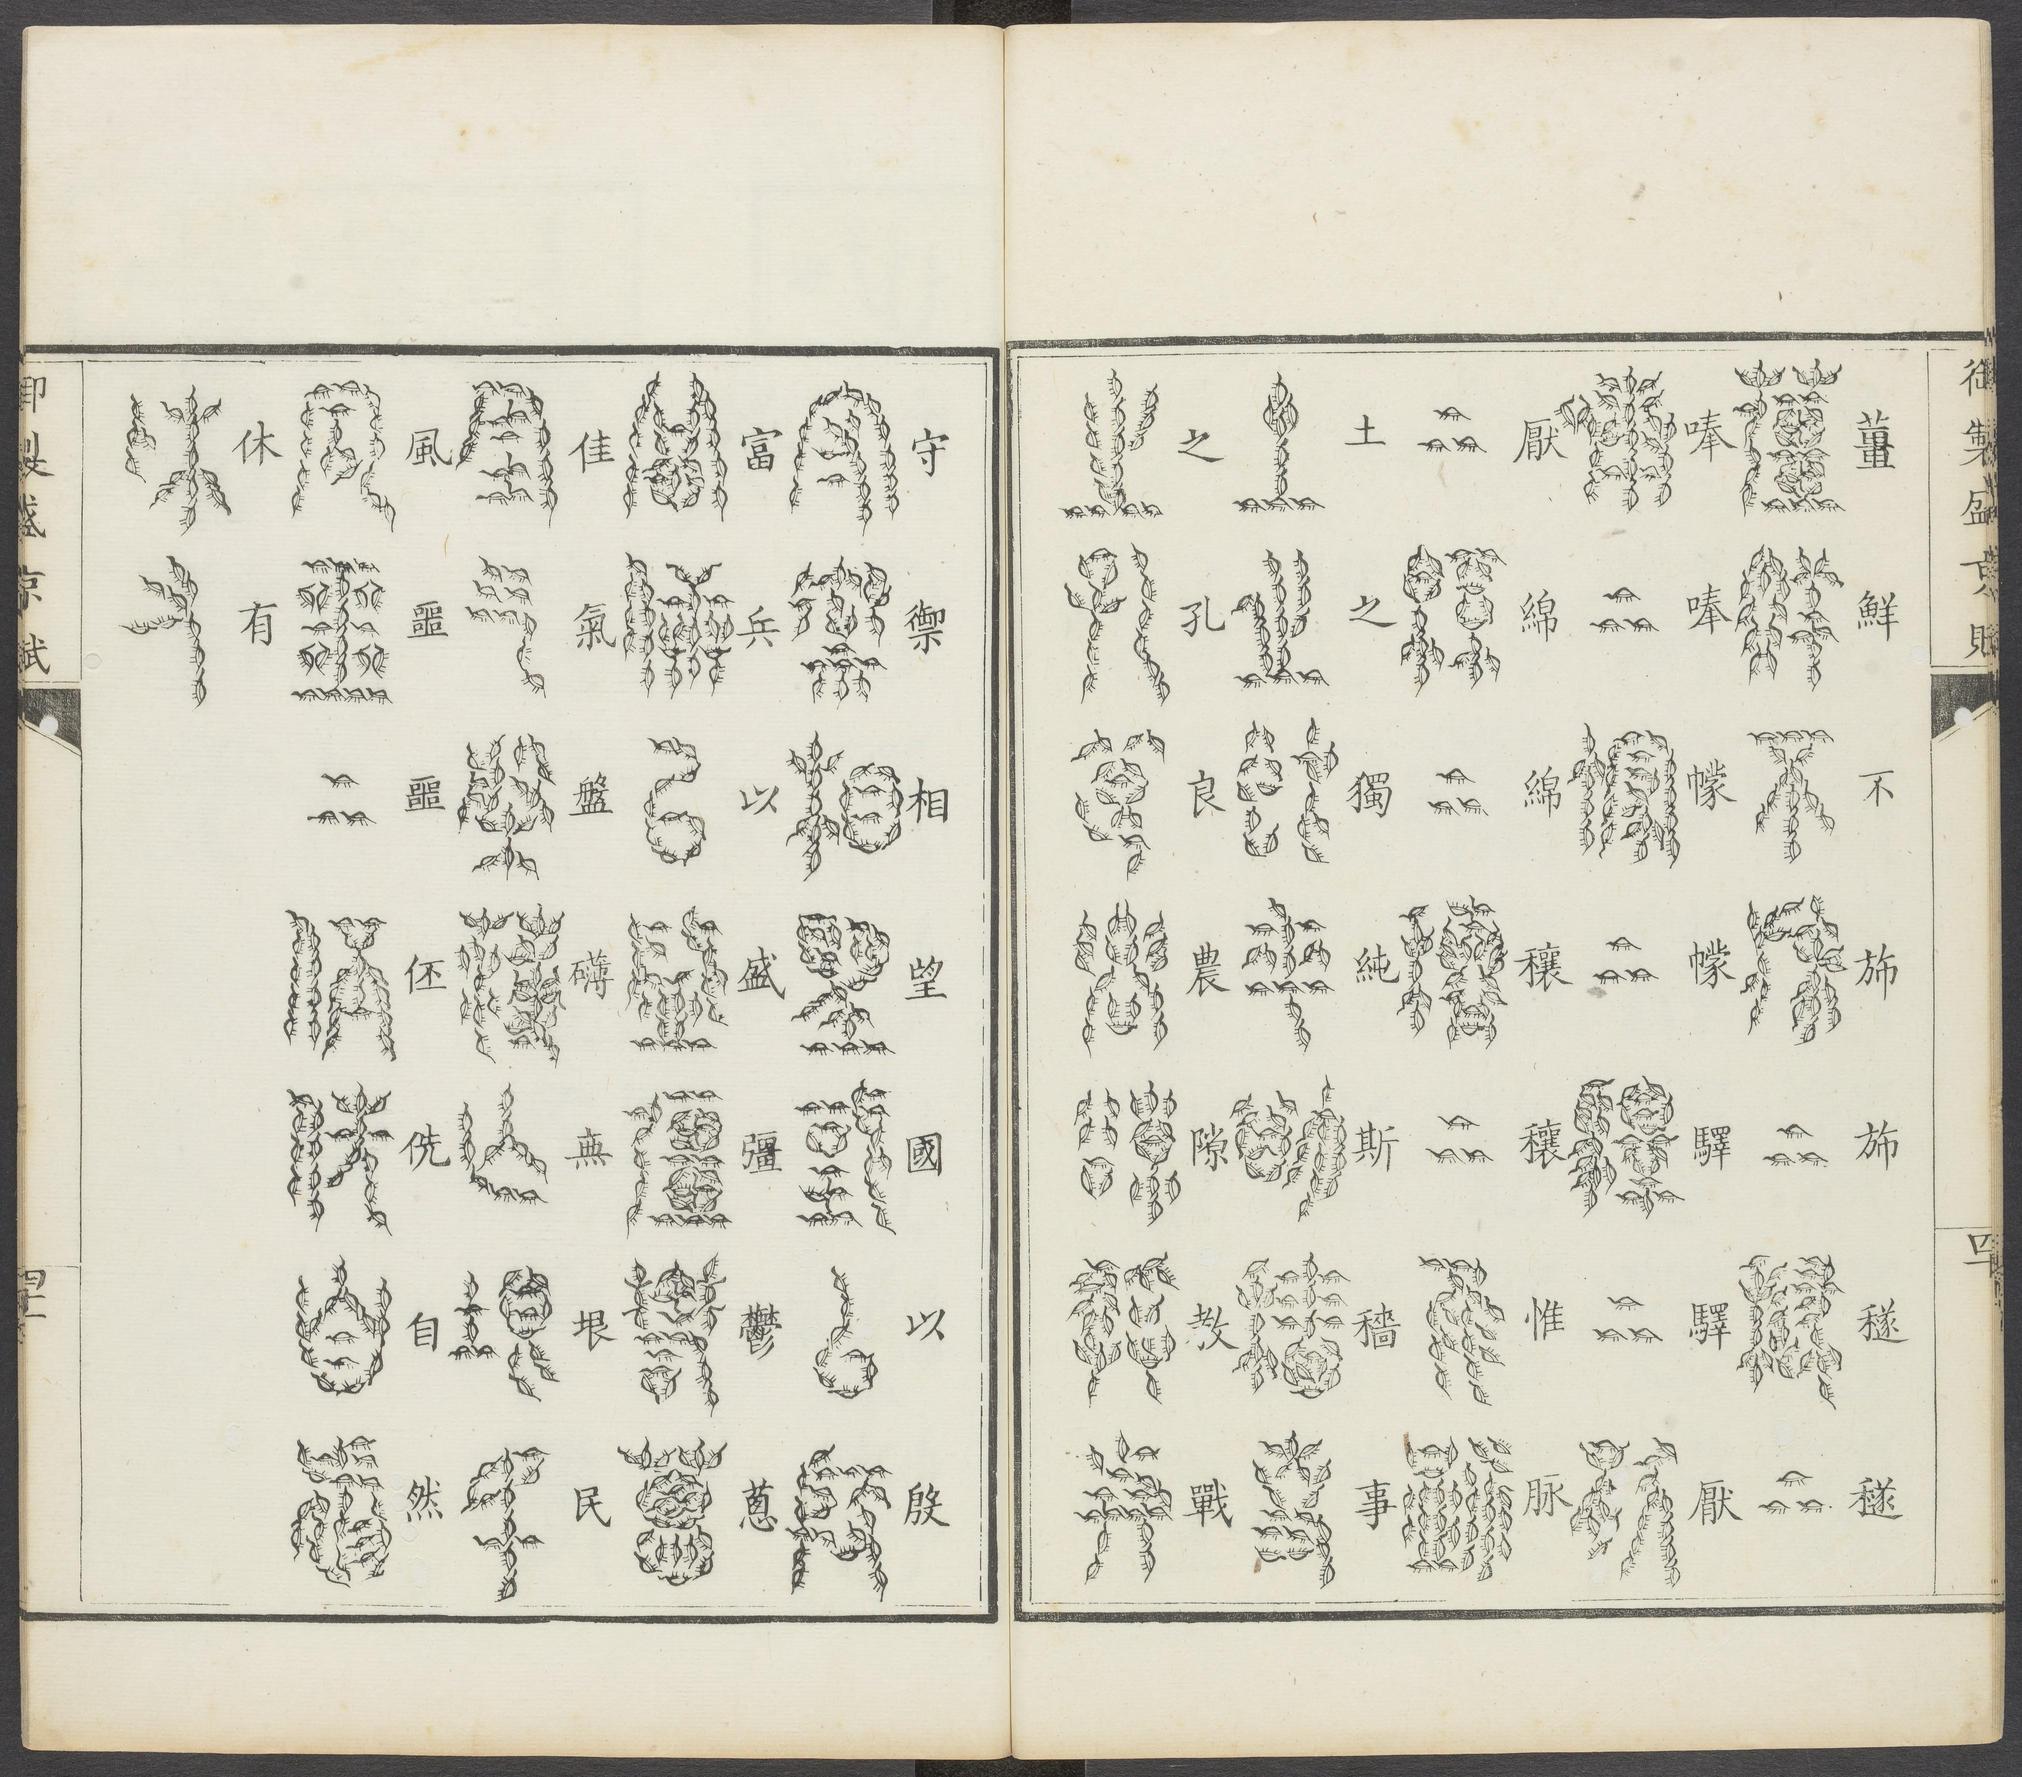 御製盛京賦
四十
薑鮮不斾斾穟穟
唪唪幪幪驛驛厭
厭綿綿穰穰惟脉
土之獨純斯穡事
之孔良農隙教戰
守禦相望國以殷
富兵以盛彊鬱蔥
佳氣盤礴無垠民
風噩噩伾侁自然
休有
御製盛京賦
四十一